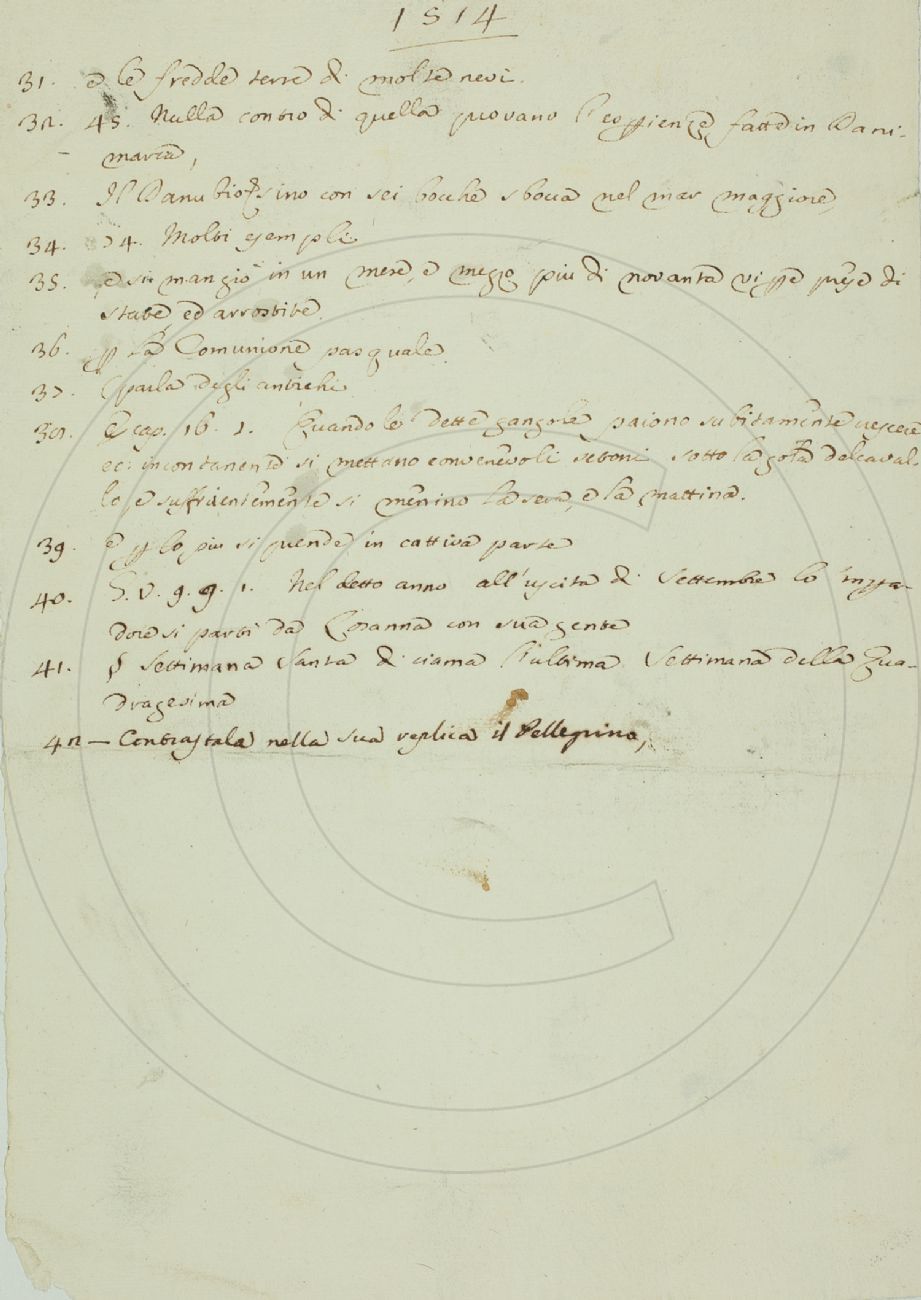 1514
31. e le fredde terre di molte nevi.
32. 45. Nulla contro di quella provano l'esperienze fatte in Dani-
marca,
33. Il Danubio sino con sei bocche sbocca nel mar maggiore,
34. 74. Molti esempli
35. e si mangiò in un mese, e mezzo piu di novanta vipere prese di
state, ed arrostite.
36. la Comunione pasquale
37. parla degli antichi
38. E cap. 16. 1. Quando le dette gangole paiono subitamente crescere
incontanente si mettano convenevoli setoni sotto la gola del caval-
lo, e sufficientemente si menino la sera, e la mattina.
39. e p lo piu si prende in cattiva parte
40. G. V. 9. 9. 1. Nel detto anno all'uscita di Settembre lo 'mpera-
dore si parti da Losanna con sua gente
41. Settimana Santa si ciama l'ultima Settimana della Qua-
dragesima
42 — Contrastala nella sua replica il Pellegrino,